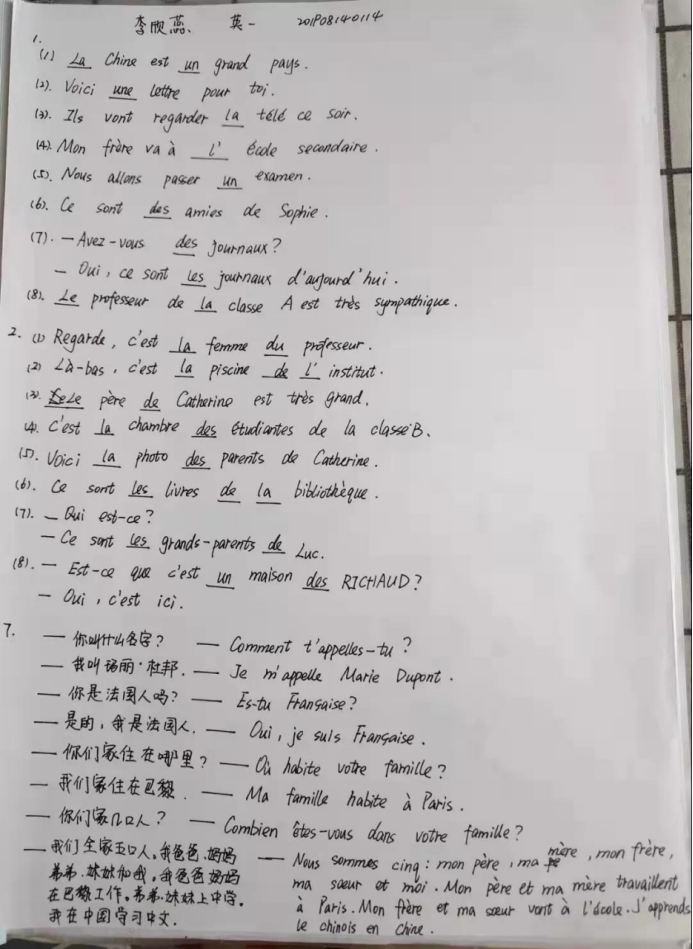 李欣蕊 英一 201908140114
1.
(1) La Chine est un grand pays.
(2). Voici une lettre pour toi.
(3). Ils vont regarder la télé ce soir.
(4). Mon frère va à l' école secondaire.
(5). Nous allons passer un examen.
(6). Ce sont des amies de Sophie.
(7). — Avez-vous des journaux?
— Oui, ce sont les journaux d'aujourd'hui.
(8). Le professeur de la classe A est très sympathique.
2. (1) Regarde, c'est la femme du professeur.
(2) Là-bas, c'est la piscine de l' institut.
(3). Le père de Catherine est très grand.
(4). C'est la chambre des étudiantes de la classe B.
(5). Voici la photo des parents de Catherine.
(6). Ce sont les livres de la bibliothèque.
(7). — Qui est-ce?
— Ce sont les grands-parents de Luc.
(8). — Est-ce que c'est un maison des RICHAUD?
— Oui, c'est ici.
7. — 你叫什么名字? — Comment t'appelles-tu?
— 我叫玛丽·杜邦. — Je m'appelle Marie Dupont.
— 你是法国人吗? — Es-tu Française?
— 是的,我是法国人. — Oui, je suis Française.
— 你们家住在哪里? — Où habite votre famille?
— 我们家住在巴黎. — Ma famille habite à Paris.
— 你们家几口人? — Combien êtes-vous dans votre famille?
— 我们全家五口人。我爸爸.妈妈
弟弟.妹妹和我。我爸爸妈妈
在巴黎工作。弟弟.妹妹上中学。
我在中国学习中文.
— Nous sommes cinq: mon père, ma mère, mon frère,
ma sœur et moi. Mon père et ma mère travaillent
à Paris. Mon frère et ma sœur vont à l'école. J'apprends
le chinois en Chine.